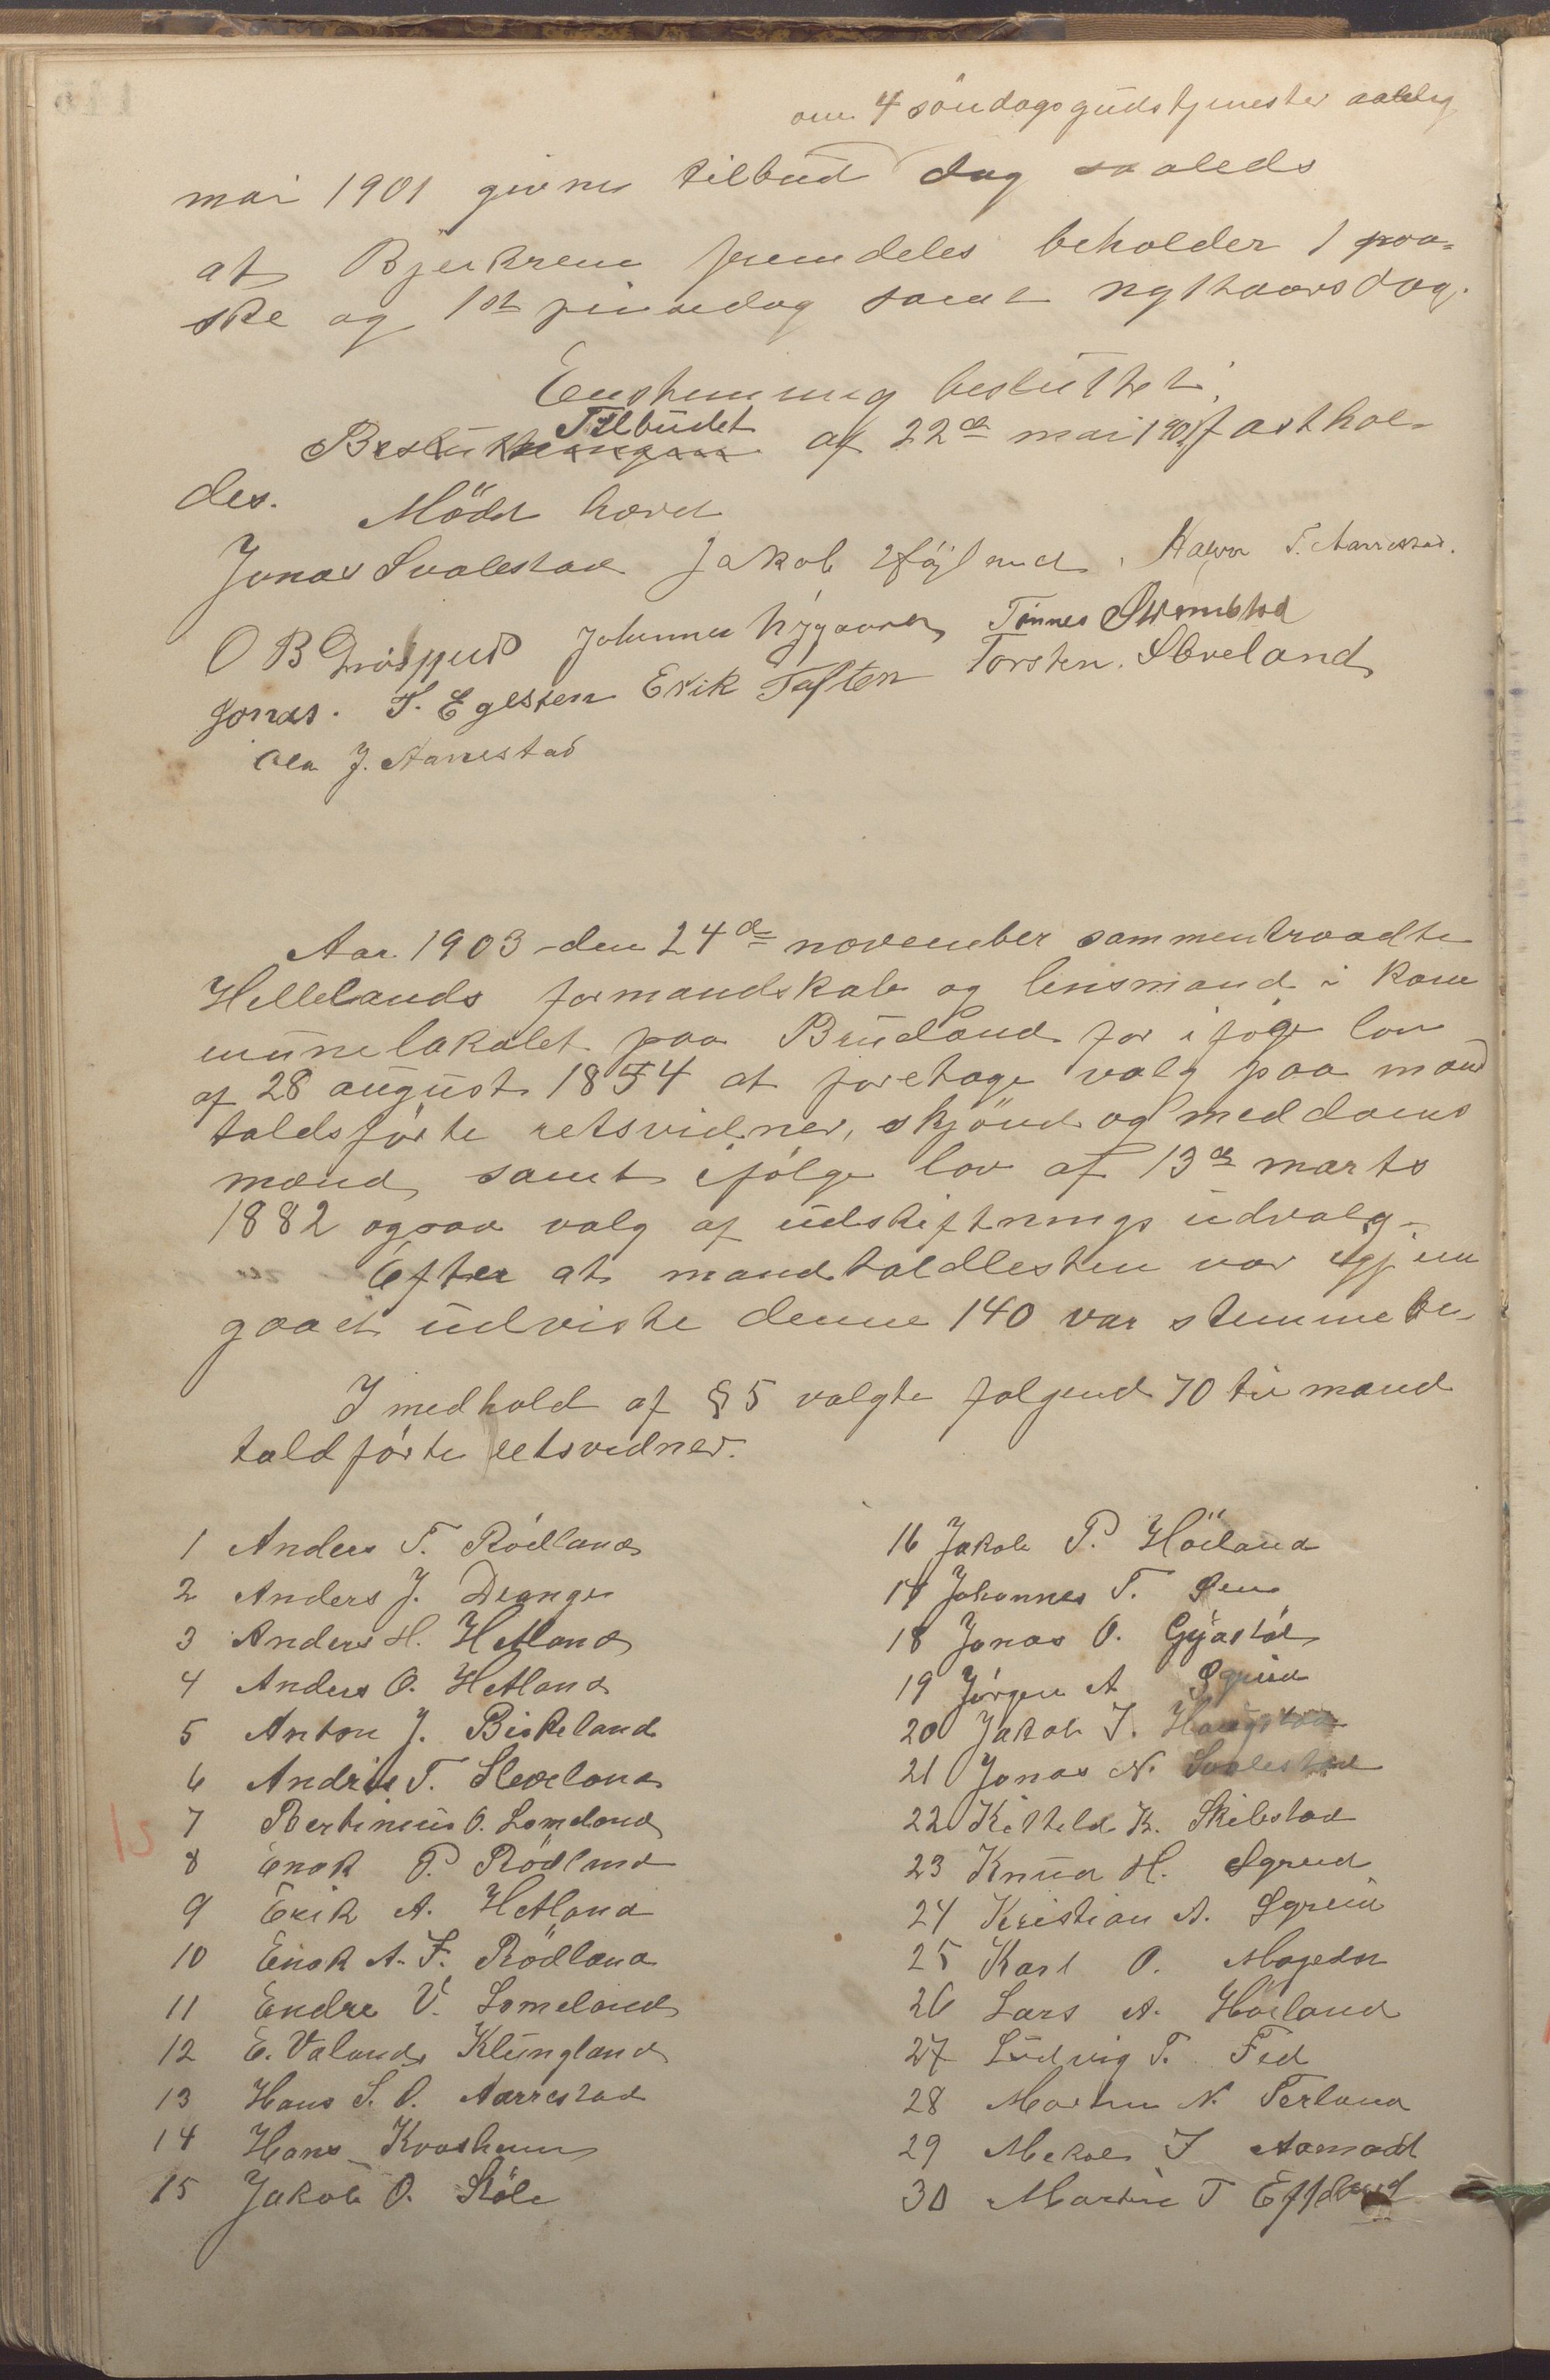 om 4 söndagsgudstjenester aarlig
mai 1901 givne tilbud dog saaledes
at Bjerkrem fremdeles beholder 1 paa-
ske og 1st pinsedag samt nythaarsdag.
Enstemmig besluttet:
Tilbudet
Beslutningen af 22de mai 1901 fasthol-
des. Mödet hævet
Jonas Svalestad Jakob Höjland Halvor T. Aarrestad.
O B Drösjpud Johannes Nygaard Tönnes Strömstad
Jonas. S. Egelsten Erik Toften Torsten. Sleveland
Ola J. Aarrestad
Aar 1903 den 24de november sammentraadte
Hellelands formandskab og lensmand i kom
munelokalet paa Brudland for ifølge lov
af 28 august 1854 at foretage valg paa mand
taldsførte retsvidner, skjönd og meddoms
mænd samt ifölge lov af 13de marts
1882 ogsaa valg af udskiftnings udvalg.
Efter at mandtaldlesten var gjem
gaaet udviste denne 140 var stemmebe-
I medhold af § 5 valgte følgend 70 til mand
taldførte retsvidner.
1 Anders T. Rödland
2 Anders J. Drange
3 Anders H. Hetland
4 Anders O. Hetland
5 Anton J. Birkeland
6 Andrias T. Sleveland
7 Bertinius O. Lomeland
8 Enok P. Rödland
9 Erik A. Hetland
10 Enok A. F. Rödland
11 Endre V. Lomeland
12 E. Valand Klungland
13 Hans S. O. Aarrestad
14 Hans Kvasheim
15 Jakob O. Støle
16 Jakob P. Höiland
17 Johannes T. Øen
18 Jonas O. Gyastöl
19 Jørgen A Egrem
20 Jakob J. Haugstad
21 Jonas N. Svalestad
22 Kitteld K. Skibstad
23 Knud H. Egreid
24 Kristian A. Egrem
25 Karl O. Mogedn
26 Lars A. Höiland
27 Ludvig T. Fed
28 Martin N. Terland
29 Mikal J Aamodt
30 Martin T Efteland